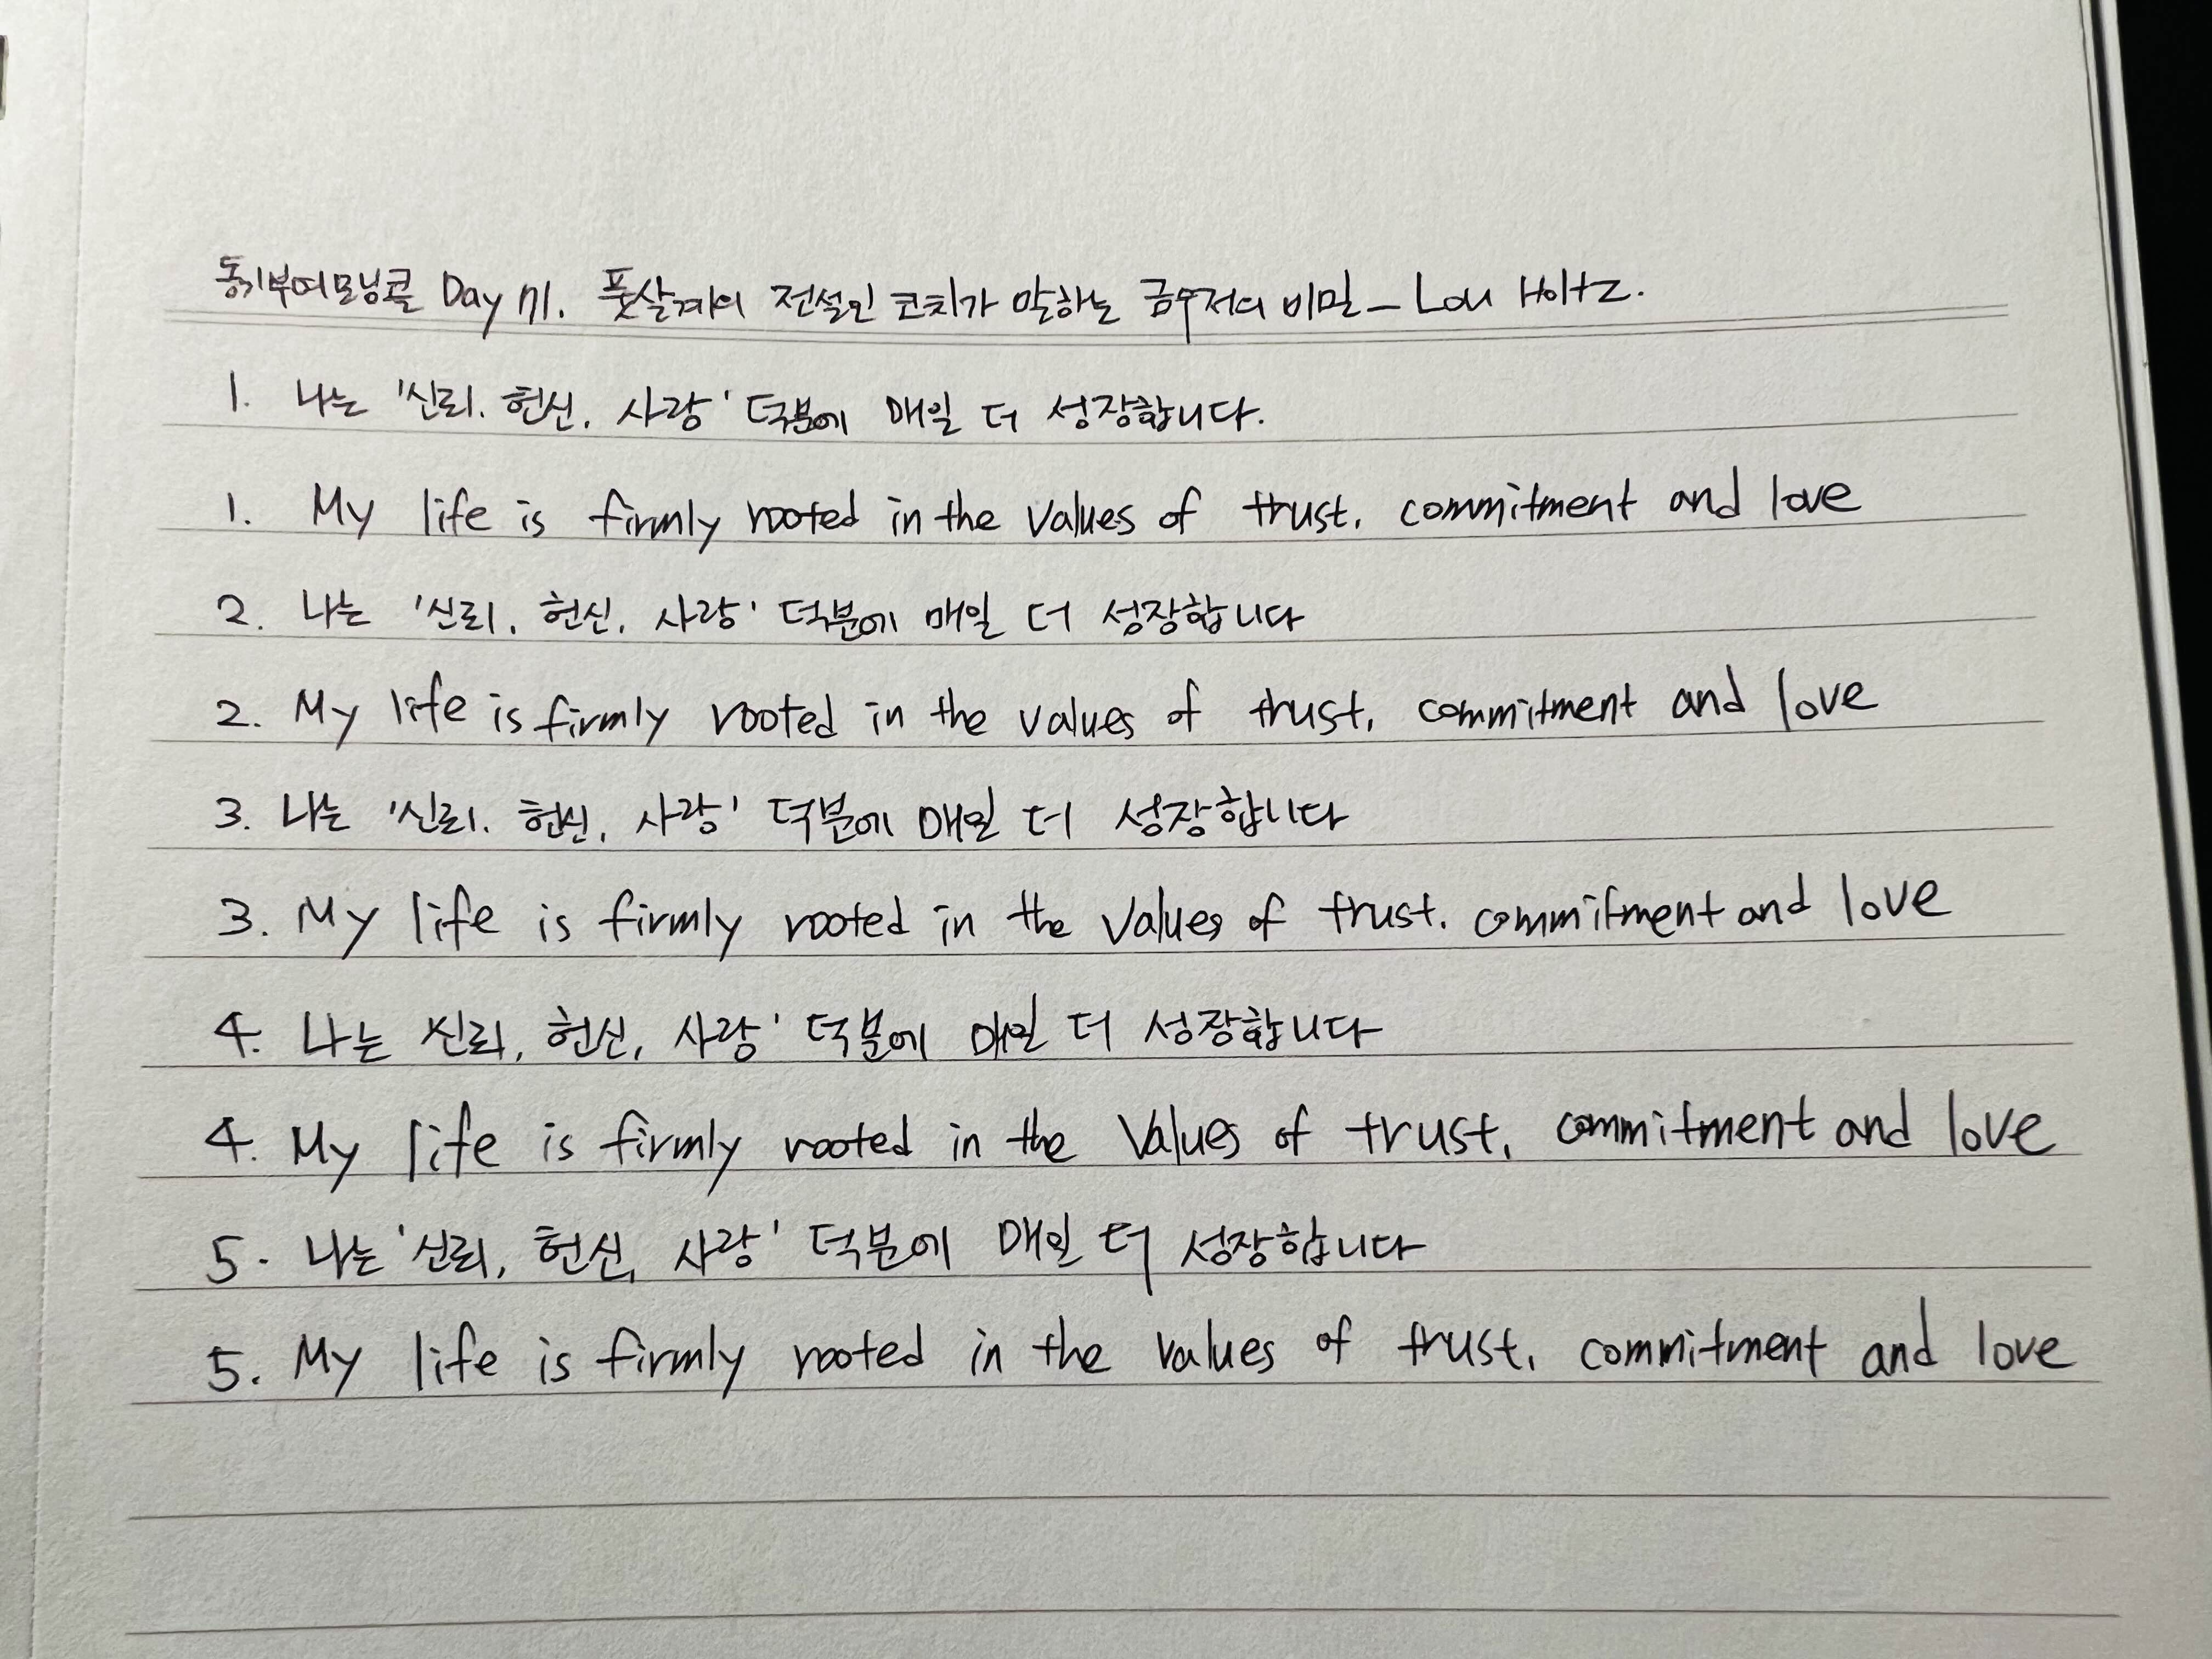 동기부여모닝콜 Day 71. 풋살계의 전설인 코치가 말하는 금수저의 비밀 - Lou Holtz.
1. 나는 '신뢰. 헌신, 사랑' 덕분에 매일 더 성장합니다.
1. My life is firmly rooted in the values of trust, commitment and love
2. 나는 '신뢰, 헌신, 사랑' 덕분에 매일 더 성장합니다
2. My life is firmly rooted in the values of trust, commitment and love
3. 나는 '신뢰. 헌신, 사랑' 덕분에 매일 더 성장합니다
3. My life is firmly rooted in the values of trust. commitment and love
4. 나는 신뢰, 헌신, 사랑' 덕분에 매일 더 성장합니다
4. My life is firmly rooted in the Values of trust, commitment and love
5. 나는 '신뢰, 헌신, 사랑' 덕분에 매일 더 성장합니다
5. My life is firmly rooted in the values of trust, commitment and love